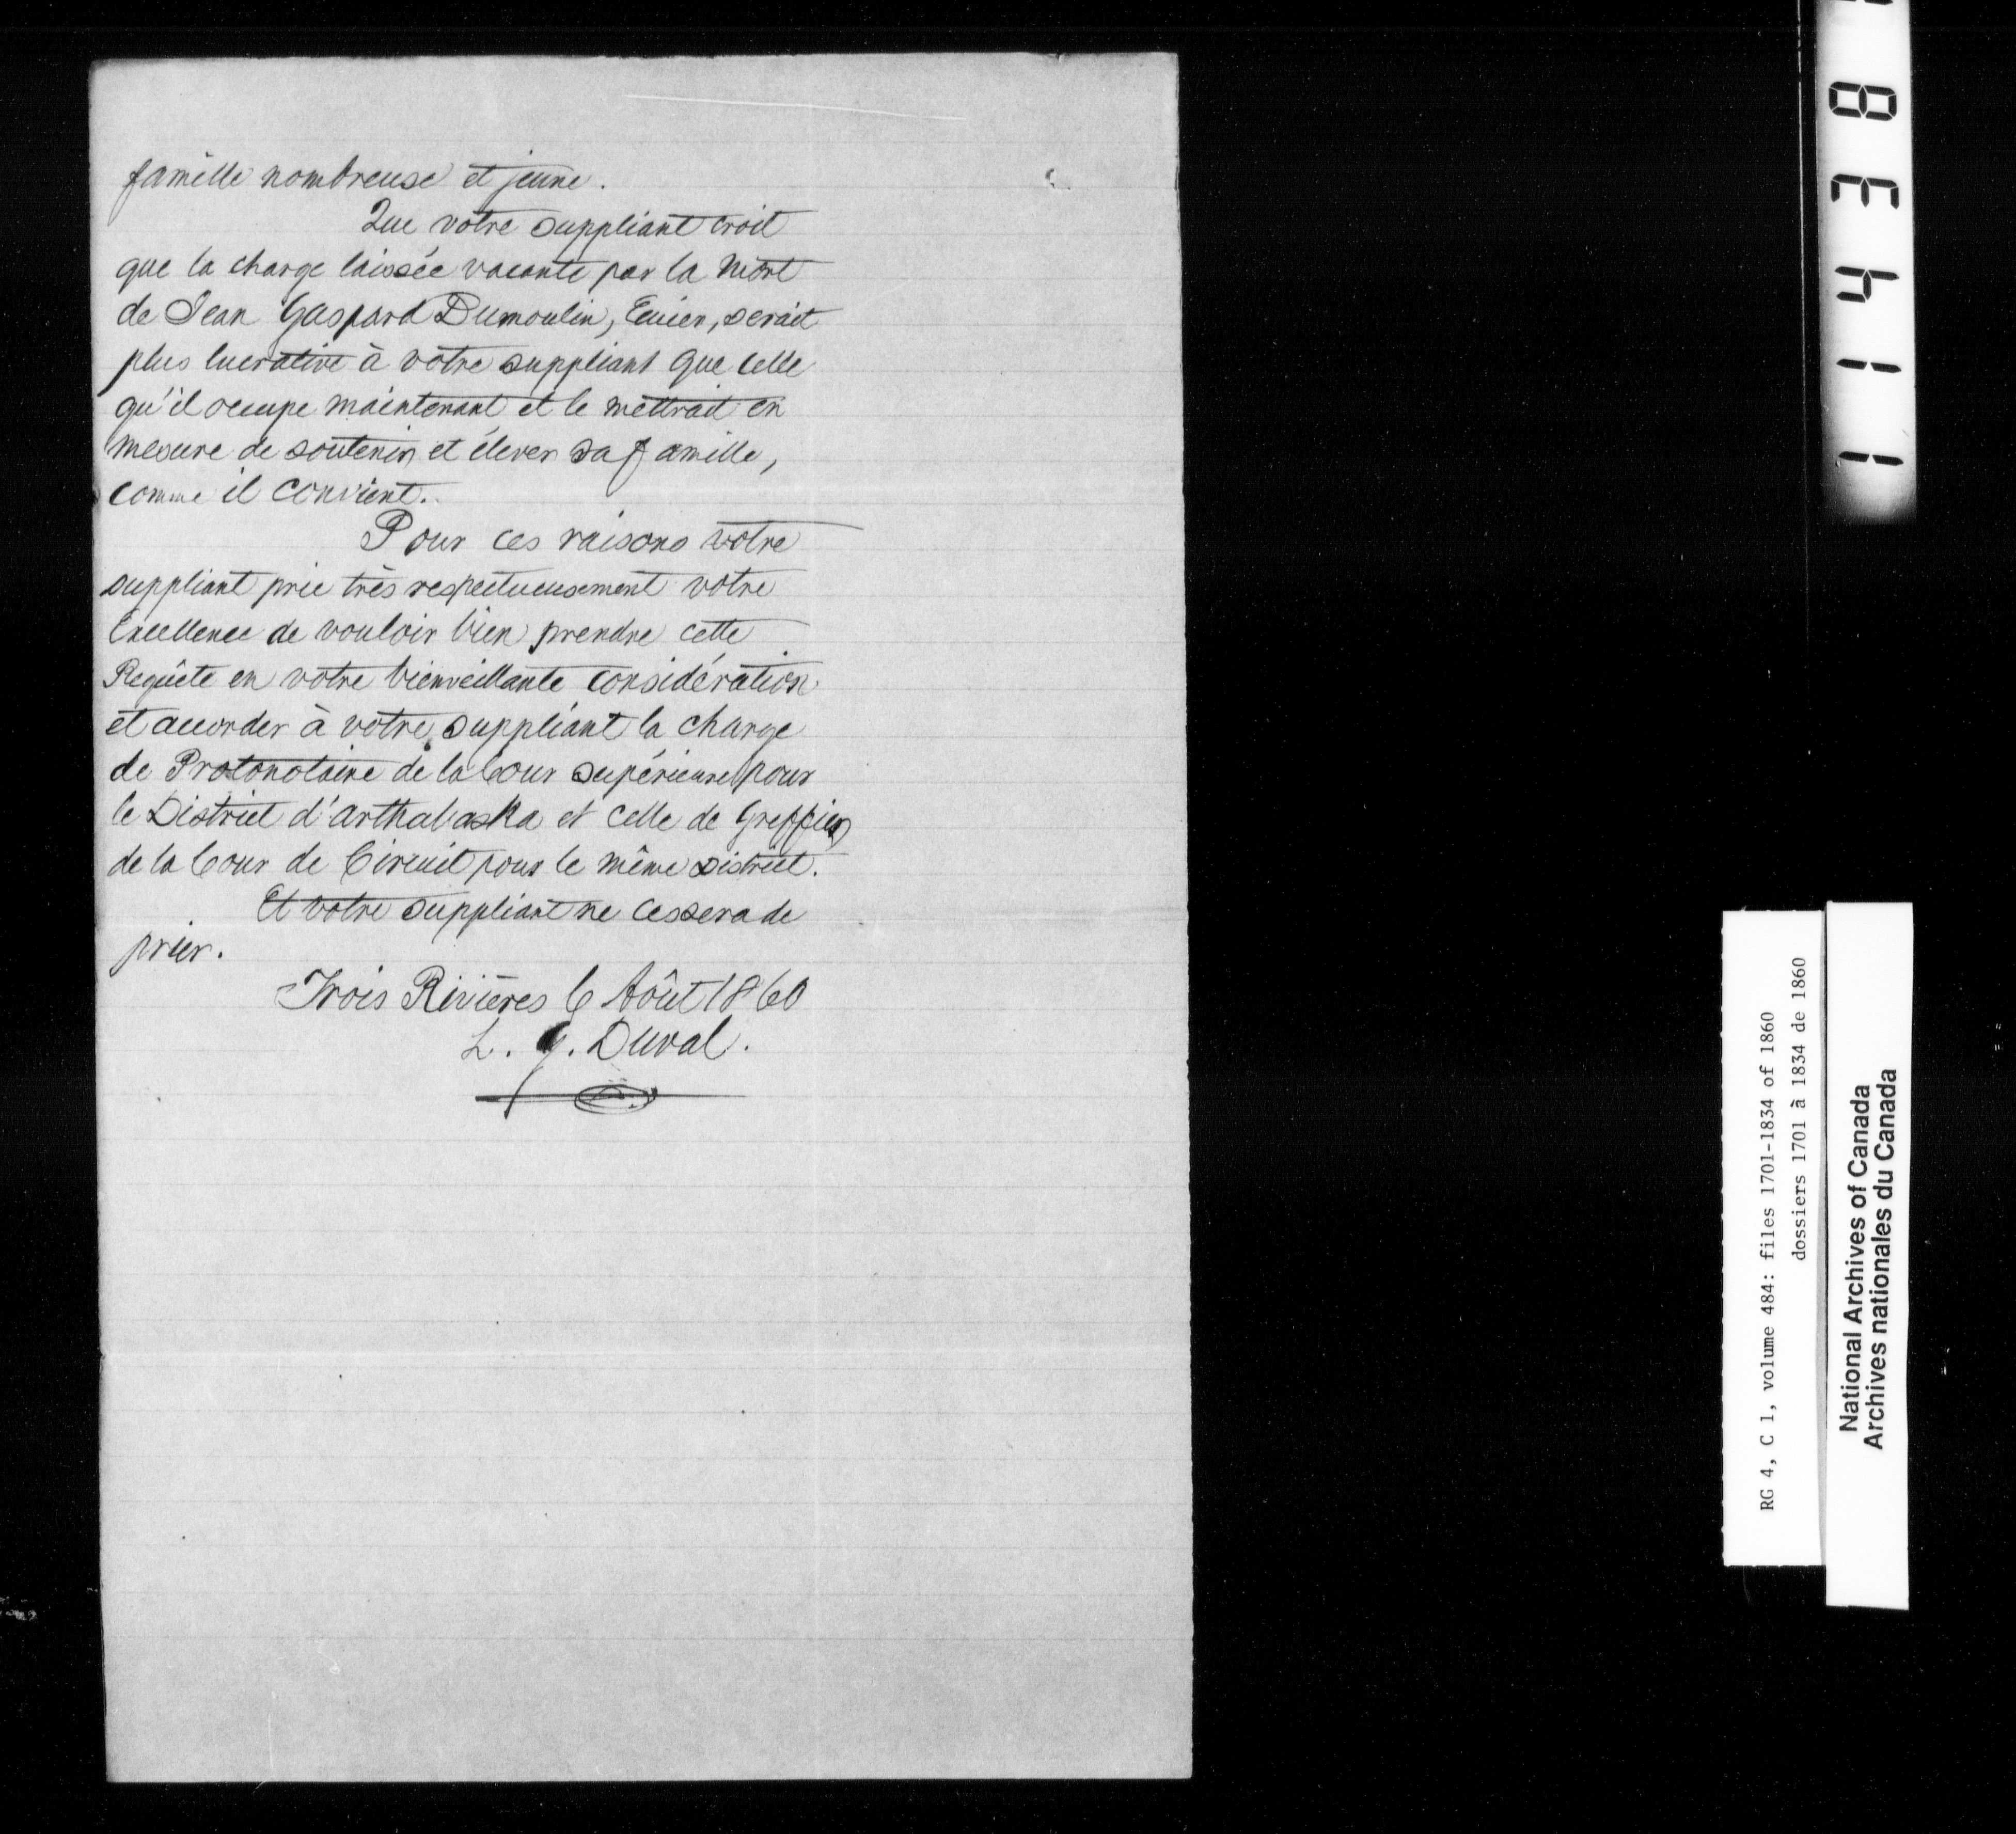 famille nombreuse et jeune.
Que votre suppliant croit
que la charge laissée vacante par la mort
de Jean Gaspard Dumoulin, Ecuier, serait
plus lucrative à votre suppliant que celle
qu'il occupe maintenant et le mettrait en
mesure de soutenir et élever sa famille,
comme il convient.
Pour ces raisons votre
suppliant prie très respectueusement votre
Excellence de vouloir bien prendre cette
Requête en votre bienveillante considération
et accorder à votre suppliant la charge
de Protonotaire de la Cour supérieure pour
le District d'arthabaska et celle de Greffier
de la Cour de Circuit pour le même District.
Et votre suppliant ne cessera de
prier.
Trois Rivières 6 Août 1860
L. G. Duval.
RG 4, C 1, volume 484: files 1701-1834 of 1860
dossiers 1701 à 1834 de 1860
National Archives of Canada
Archives nationales du Canada